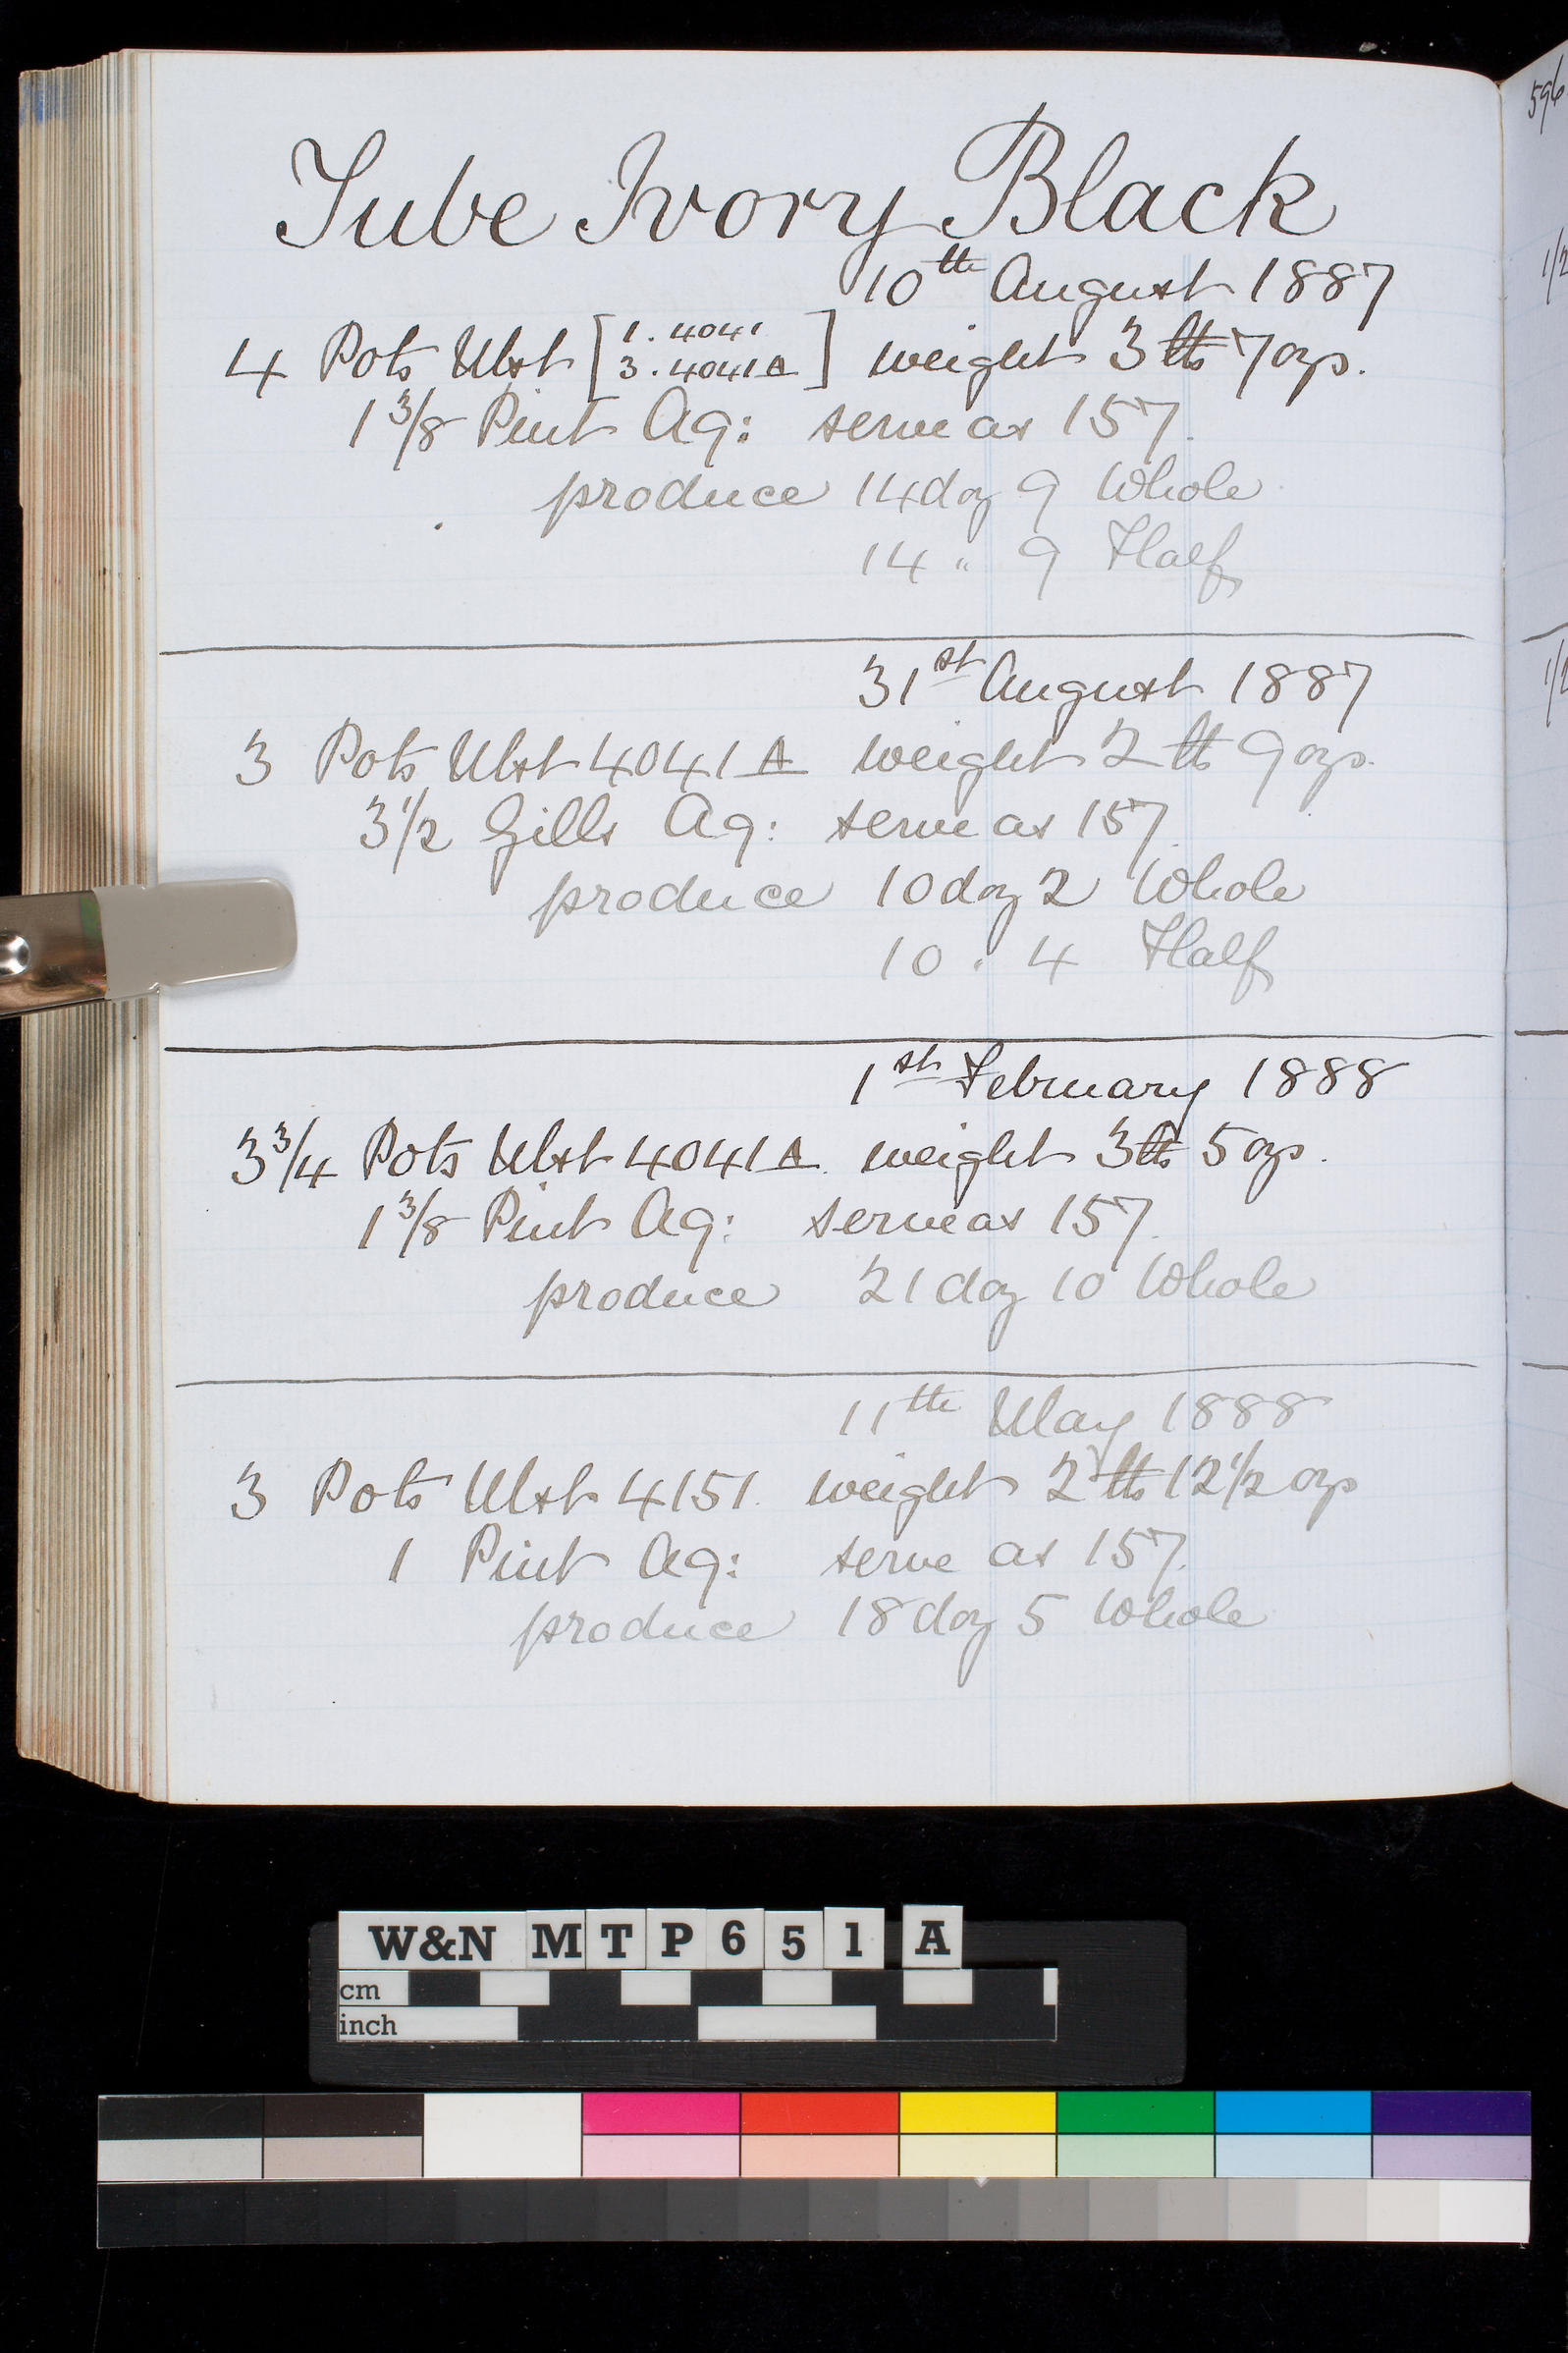 Tube Ivory Black
10th August 1887
4 Pots Ubst [1. 4041 3. 4041A] weight 3 lbs 7 ozs.
1 3/8 Pint Aq: serve as 157.
produce 14 doz 9 Whole
14 " 9 Half
31st August 1887
3 Pots Ubst 4041A weight 2 lb 9 ozs.
3 1/2 Gills Aq: serve as 157.
produce 10 doz 2 Whole
10 . 4 Half
1st February 1888
3 3/4 Pots Ubst 4041A. weight 3 lb 5 ozs.
1 3/8 Pint Aq: serve as 157.
produce 21 doz 10 Whole
11th May 1888
3 Pots Ubst 4151. weight 2 lbs 12 1/2 ozs
1 Pint Aq: serve as 157.
produce 18 doz 5 Whole
596
W&N MTP651 A
cm
inch